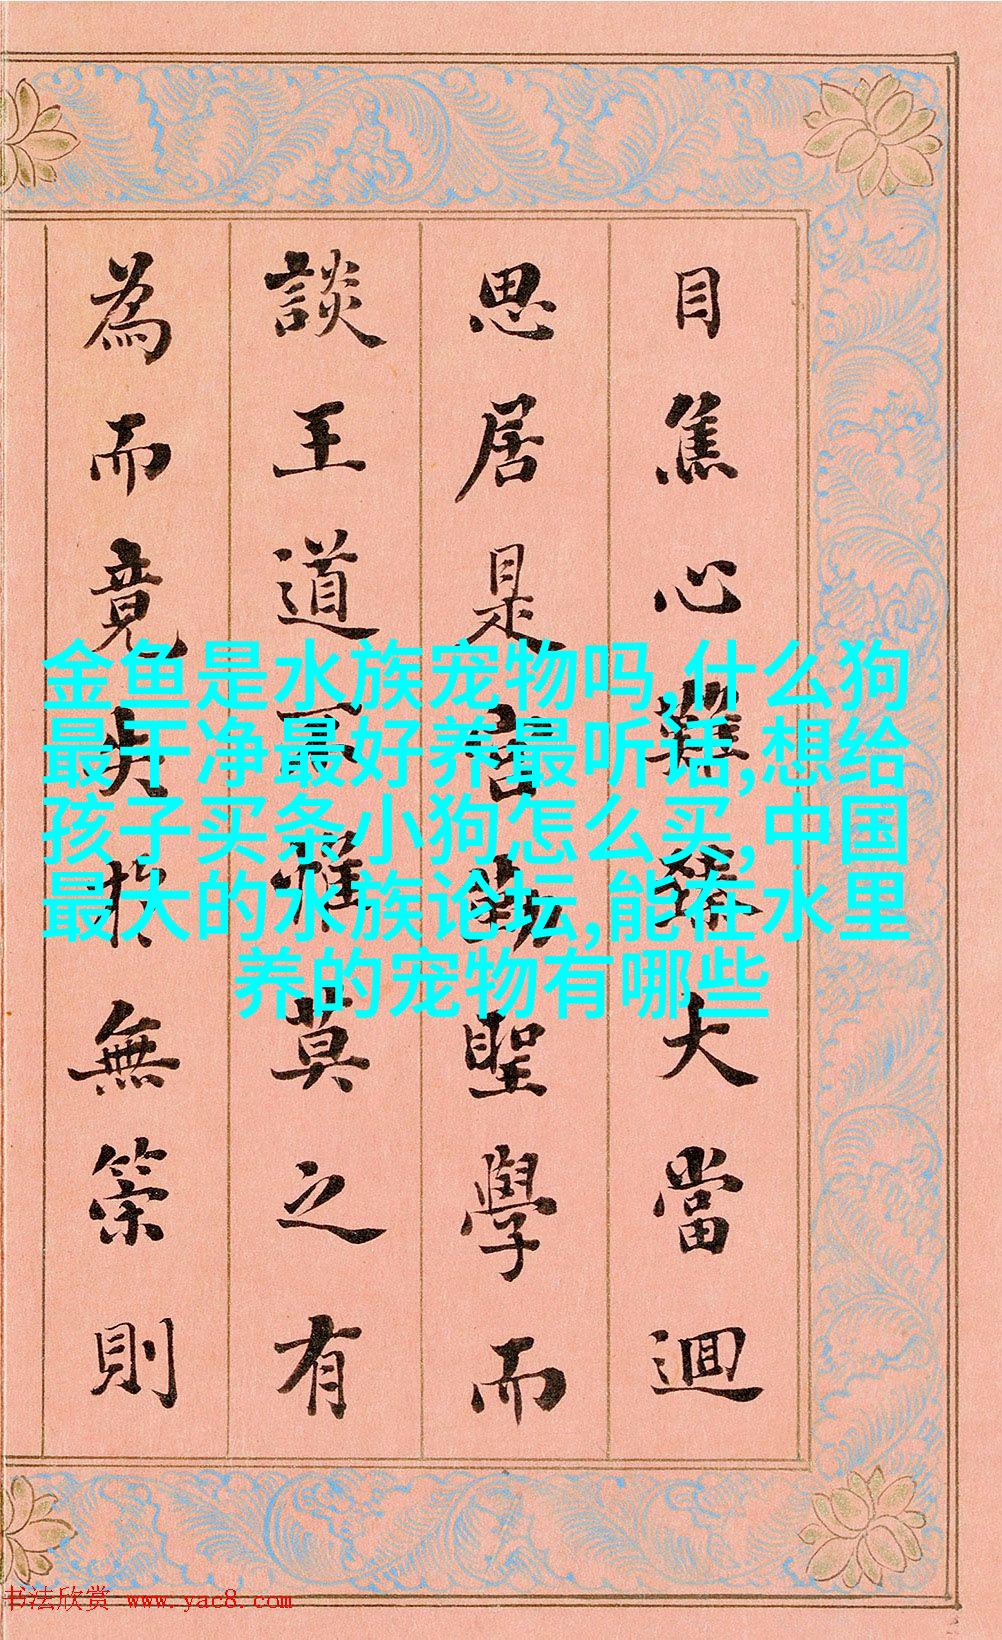 目焦心難大當迴
思居是聖學而
談王道莫之有
為而竟失於無策則
金鱼是水族宠物吗,什么狗
最干净最好养最听话,想给
孩子买条小狗怎么买,中国
最大的水族论坛,能在水里
养的宠物有哪些
书法欣赏 www.yac8.com